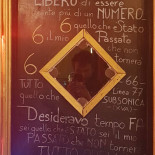 LIBERO di essere
niente più di un NUMERO
6 quello che è Stato
6 il mio Passato
che non
tornerà
6 66-
TUTTO Linea 77
quello SUBSONICA
che
Desideravo tempo FA
sei quello che è STATO sei il mio
PASSATO che NON